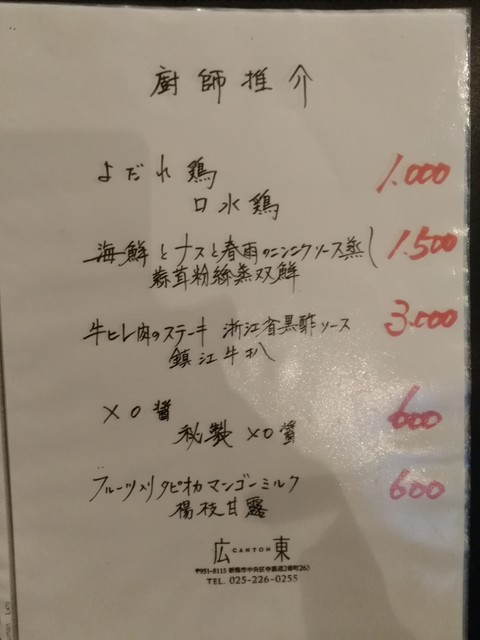 廚師推介
よだれ鶏 1.000
口水鶏
海鮮とナスと春雨のニンニクソース蒸し 1.500
蒜茸粉絲蒸双鮮
牛ヒレ肉のステーキ 浙江省黒酢ソース 3.000
鎮江牛扒
XO醤 600
秘製XO醤
フルーツ入りタピオカマンゴーミルク 600
楊枝甘露
広 CANTON 東
〒951-8115 新潟市中央区寺裏通2番町263
TEL. 025-226-0255